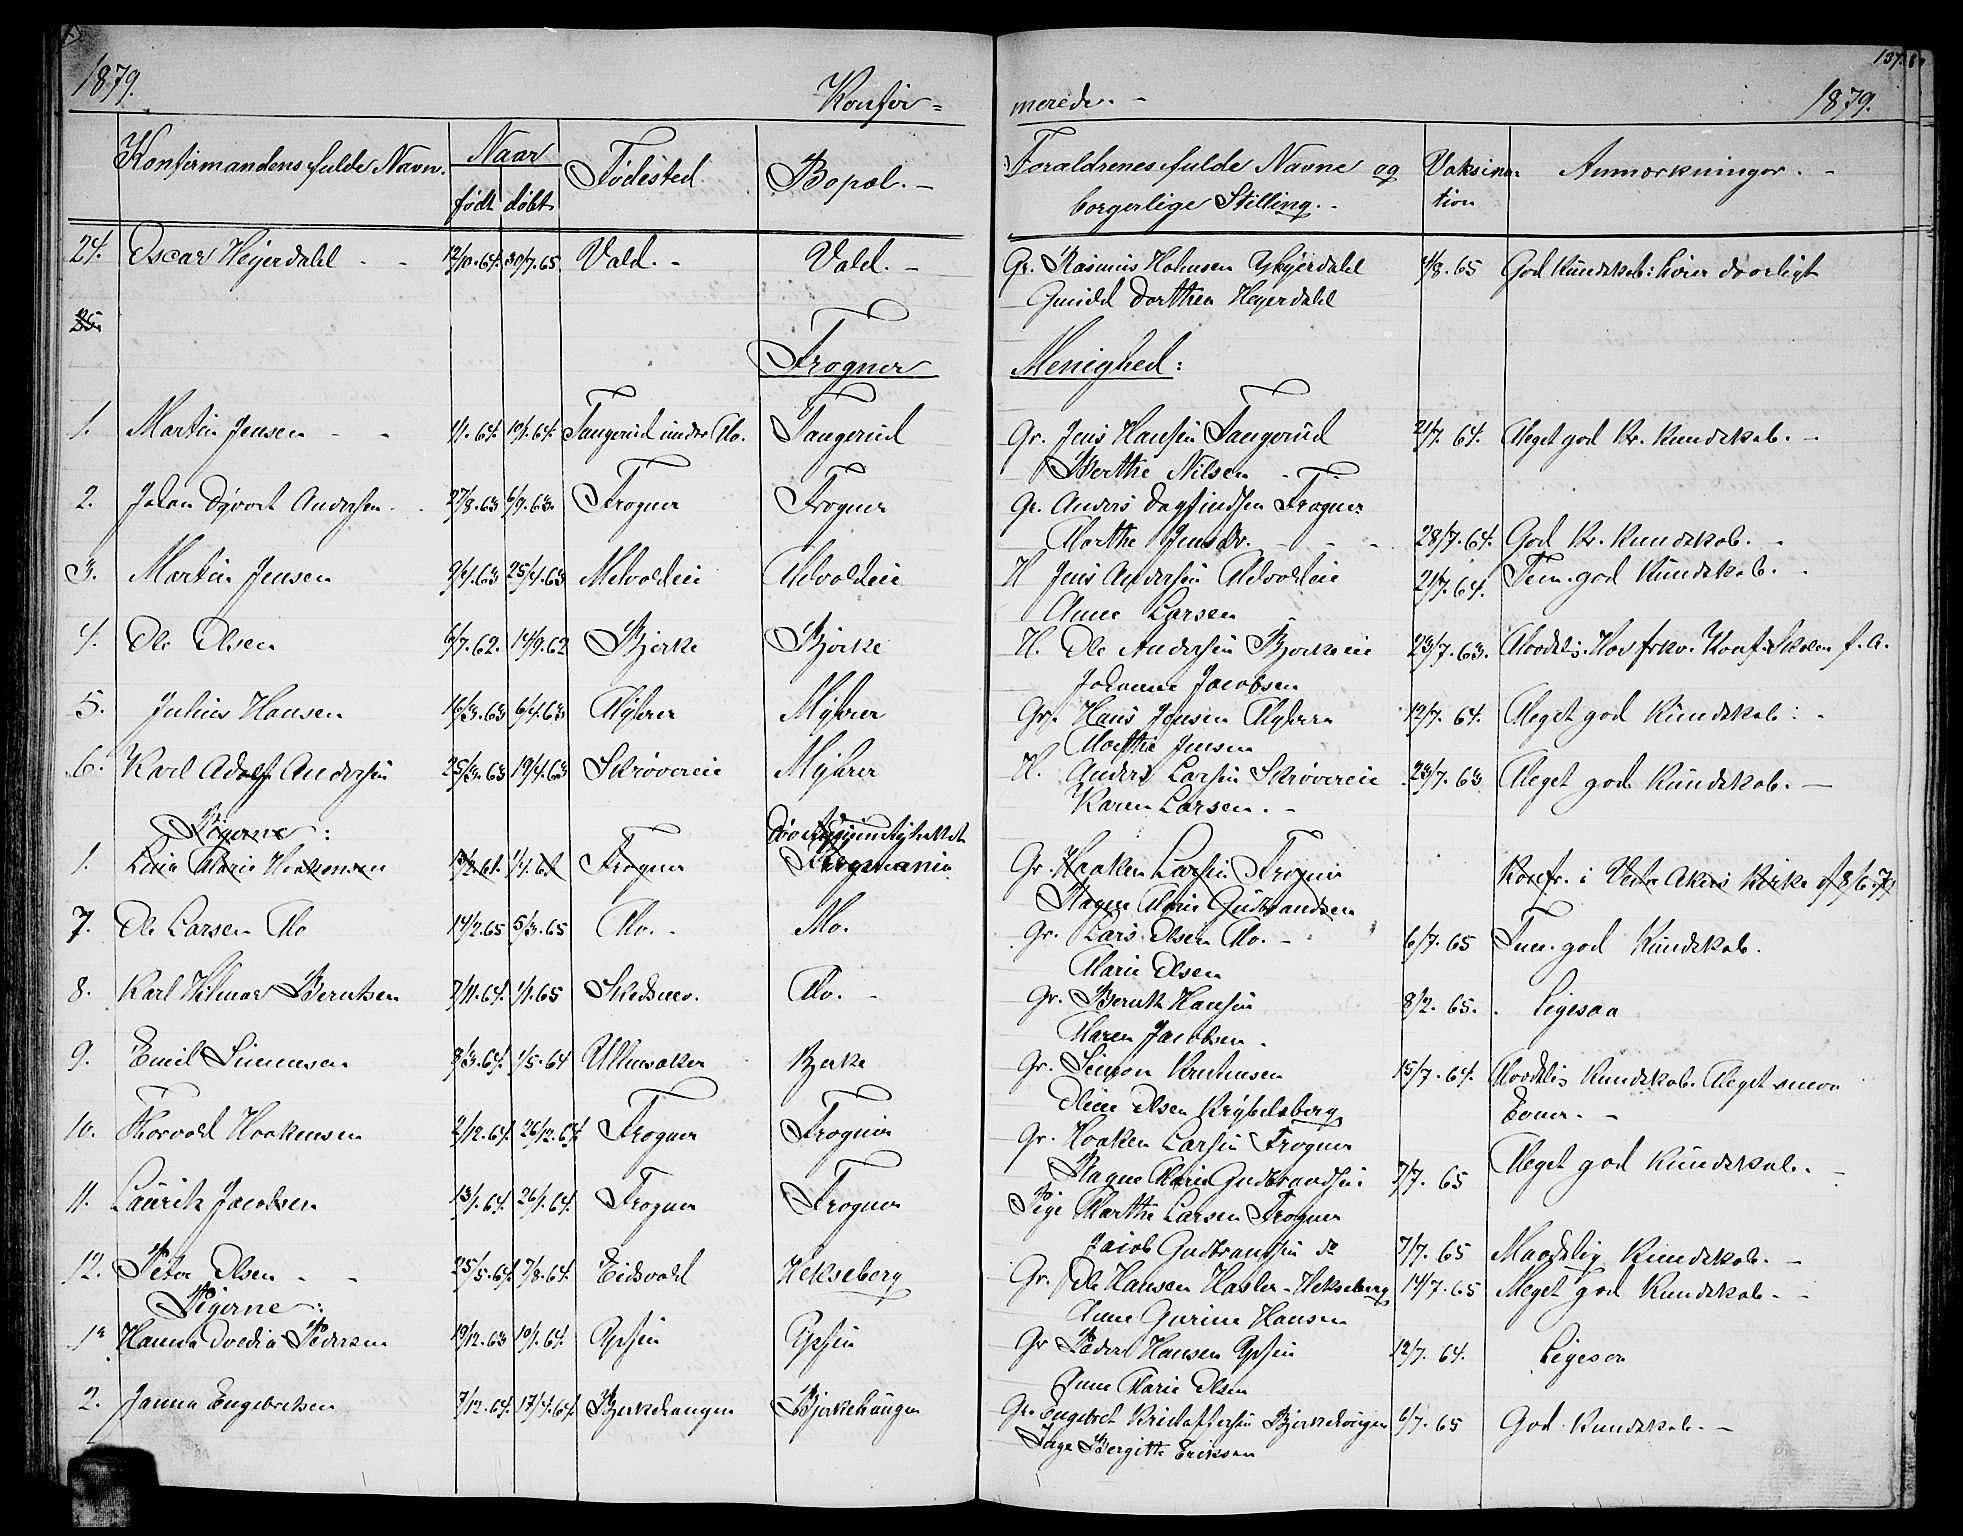 137.
1879. Konfir= merede. - 1879.
Konfirmandens fulde Navn. Naar født døbt Fødested. Bopæl. - Forældrenes fulde Navne og borgerlige Stilling. - Vaksina- tion Anmærkninger. -
24. Oscar Heyerdahl - - 12/10.64. 30/7.65. Vald. - Vald. - Gr. Rasmus Hohnsen 4/8.65 God Kundskab: hører daarligt
Gunild Dorthea Heyerdahl
25.
Frogner Menighed:
1. Martin Jensen - - 1/1.64. 19/1.64. Tangerud under Mo. Tangerud Gr. Jens Hansen Tangerud 21/7.64. Meget god Kr. Kundskab. -
Berthe Nilsen -
2. Johan Andersen - 27/8.63 6/9.63. Frogner Frogner Gr. Anders Dagfindsen Frogner
Marthe Jensdr. - - - 28/7.64. God Kr. Kundskab. -
3. Martin Jensen 9/4.63 25/4.63 Melvoldeie Melvoldeie H Jens Andersen Melvoldeie 21/7.64. Tem. god Kundskab. -
Anne Larsen
4. Ole Olsen 6/7.62. 14/9.62 Bjerke Bjerke H. Ole Andersen Bjerkeeie 23/7.63. Maadelig. Har frkv. Konf. Skolen f. A.
Johanne Jacobsen
5. Julius Hansen 16/3.63 6/4.63 Myhrer Myhrer Gr. Hans Jensen Myhrer 12/7.64. Meget god Kundskab: -
Marthe Jensen
6. Karl Adolf Andersen 25/3.63 19/4.63 Skrøvereie Myhrer H. Anders Larsen Skrøvereie 23/7.63 Meget god Kundskab. -
Karen Larsen. -
Pigerne:
1. Lina Marie Haakensen Frogner Gr. Haaken Larsen Frogner Konfr. i Vestre Akers Kirke
Ragne Marie Gudbrandsen
7. Ole Larsen Mo 14/2.65 5/3.65 Mo. - Mo. Gr. Lars Olsen Mo. - 6/7.65 Tem. god Kundskab.
Marie Olsen
8. Karl Hilmar Berntsen 7/11.64. 1/1.65 Skedsmo. Mo. - Gr. Bernt Hansen 8/2.65. Ligesaa
Maren Jacobsen.
9. Emil Simensen 8/3.64. 1/5.64 Ullensaker Bjerke Gr. Simon Kristensen 15/7.64. Maadelig Kundskab. Meget smaa
Oline Olsen Krybelsberg Evner. -
10. Thorvald Haakensen 2/12.64. 26/12.64. Frogner Frogner Gr. Haaken Larsen Frogner
Ragne Marie Gudbrandsen 7/7.65 Meget god Kundskab. -
11. Laurits Jacobsen 13/1.64. 26/1.64. Frogner Frogner Pige Marthe Larsen Frogner
Jacob Gudbrandsen do 7/7.65 Maadelig Kundskab. -
12. Peter Olsen - - 25/5.64. 7/8.64. Eidsvold Hekseberg Gr. Ole Hansen Hasler-Hekseberg 14/7.65 Meget god Kundskab. -
Anne Gurine Hansen
Pigerne:
1. Hanna Pedersen 19/12.63 10/1.64. Gr Peder Hansen 12/7.64. Ligesaa
Anne Marie Olsen
2. Janna Engebretsen 7/12.64. 17/4.64. Bjerkehaugen Bjerkehaugen Gr. Engebret Kristoffersen Bjerkehaugen 6/7.65 God Kundskab. -
Inge Bergitte Eriksen